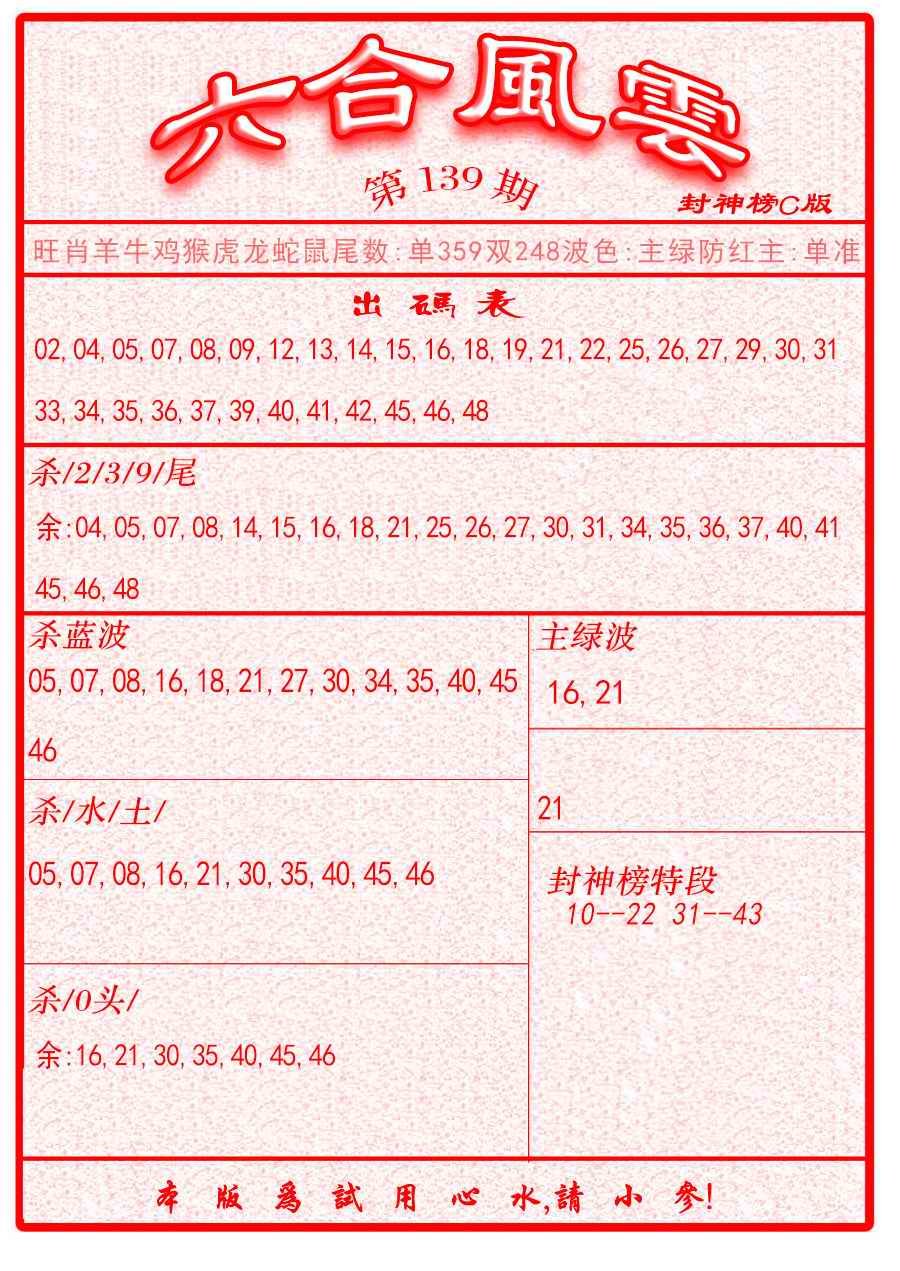 六合風雲
第139期
封神榜C版
旺肖羊牛鸡猴虎龙蛇鼠尾数:单359双248波色:主绿防红主:单准
出碼表
02,04,05,07,08,09,12,13,14,15,16,18,19,21,22,25,26,27,29,30,31
33,34,35,36,37,39,40,41,42,45,46,48
杀/2/3/9/尾
余:04,05,07,08,14,15,16,18,21,25,26,27,30,31,34,35,36,37,40,41
45,46,48
杀蓝波
05,07,08,16,18,21,27,30,34,35,40,45
46
杀/水/土/
05,07,08,16,21,30,35,40,45,46
杀/0头/
余:16,21,30,35,40,45,46
主绿波
16,21
21
封神榜特段
10--22 31--43
本版爲試用心水,請小參!